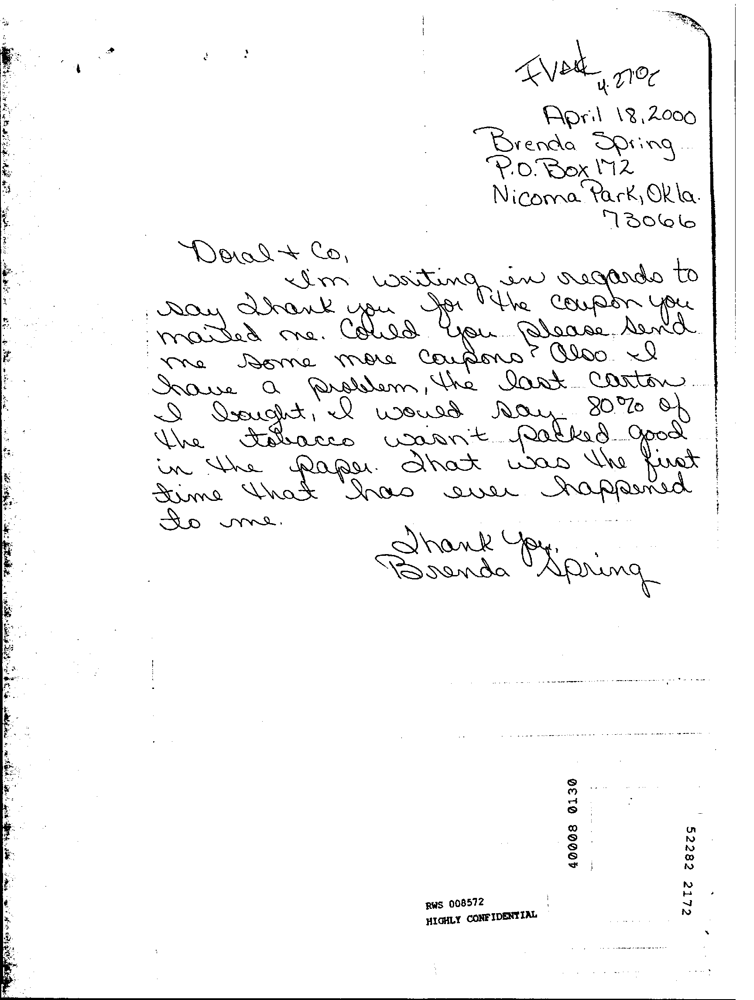 4.27
April 18, 2000
Brenda Spring
P.O. Box 172
Nicoma Park, Okla.
73066
Doral + Co,
I'm writing in regards to
say thank you for the coupon you
mailed me. Could you please send
me some more coupons? Also I
have a problem, the last carton
I bought, I would say 80% of
the tobacco wasn't packed good
in the paper. That was the first
time that has ever happened
to me.
Thank You,
Brenda Spring
40008 0130
52282 2172
RWS 008572
HIGHLY CONFIDENTIAL